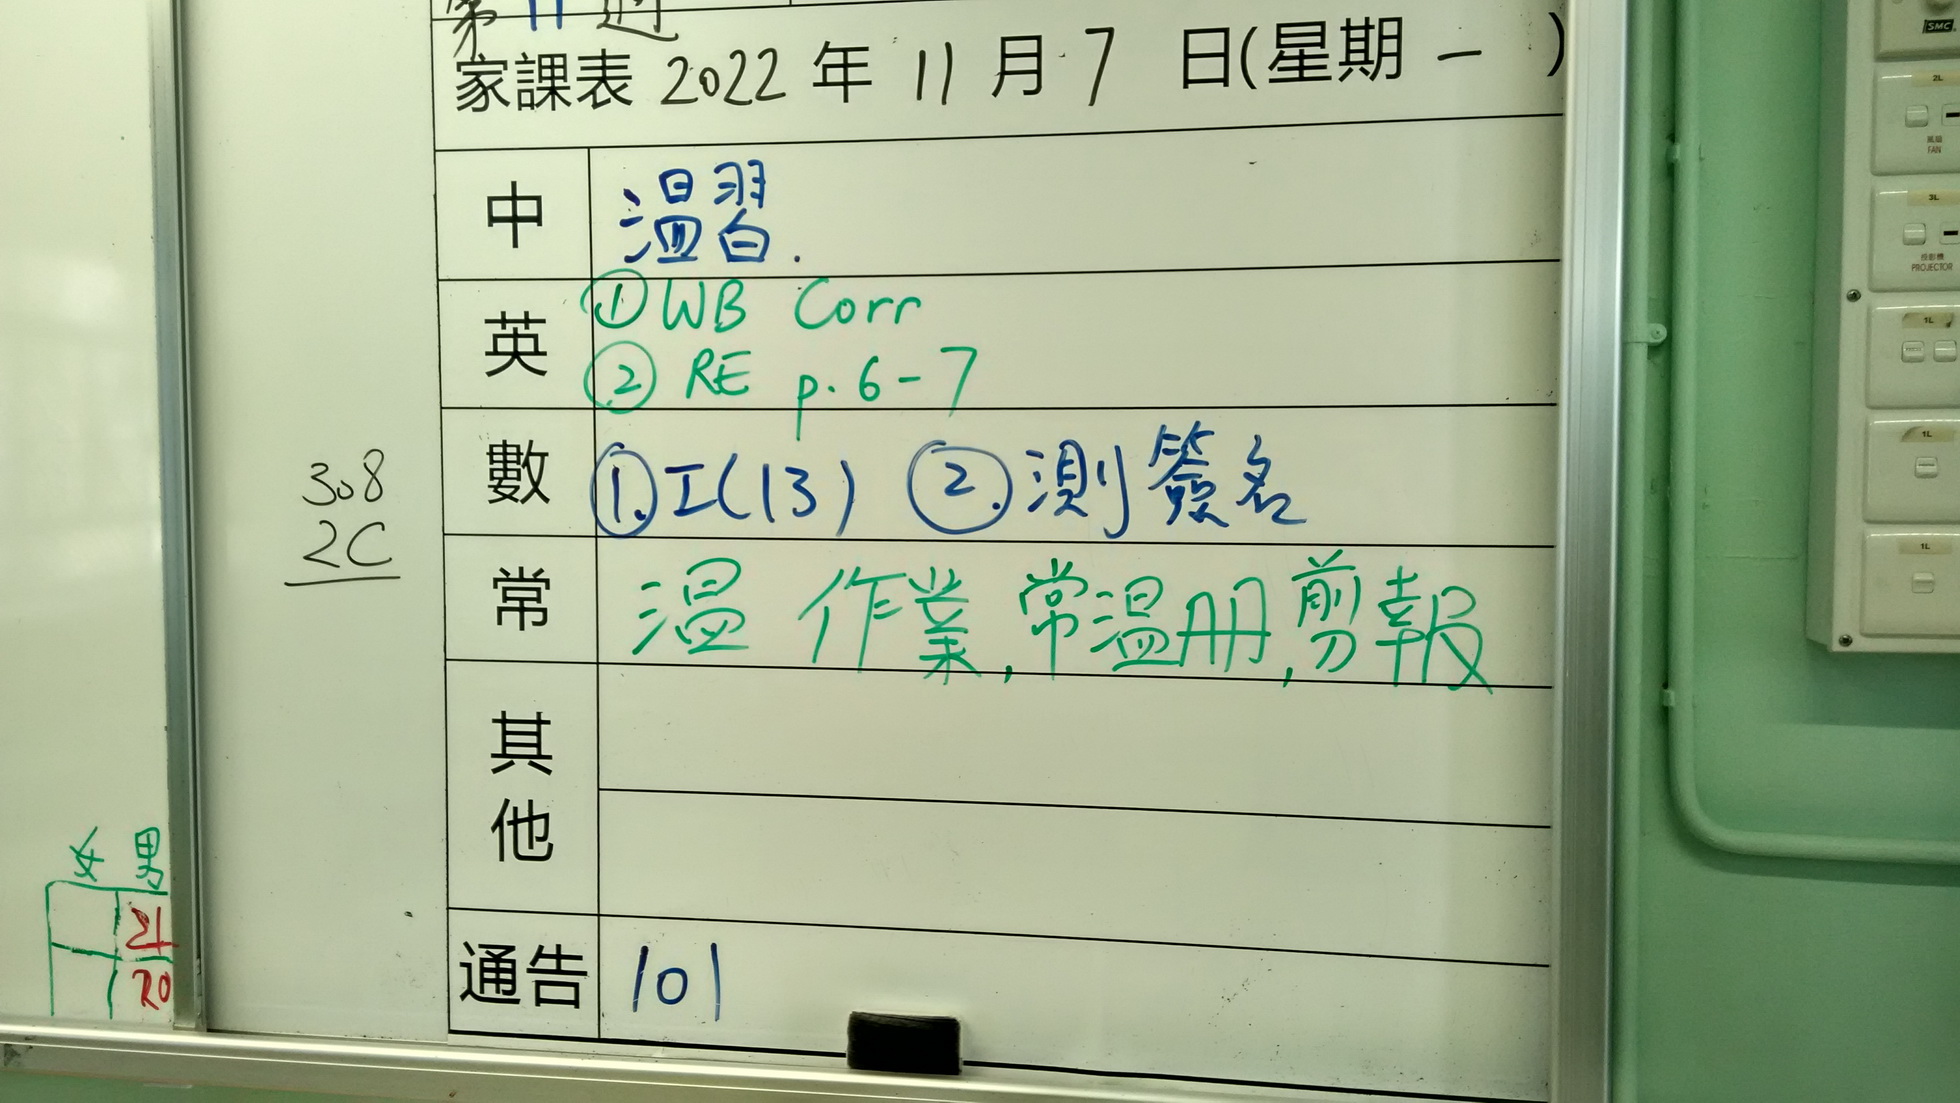 第11週
家課表 2022 年 11 月 7 日(星期 一 )
中 溫習.
英 ① WB Corr
② RE p. 6-7
數 ①. I(13) ②. 測簽名
常 溫 作業, 常溫册, 剪報
其他
通告 101
308
2C
女 男
21
20
SMC
2L
風扇
FAN
3L
投影機
PROJECTOR
1L
1L
1L